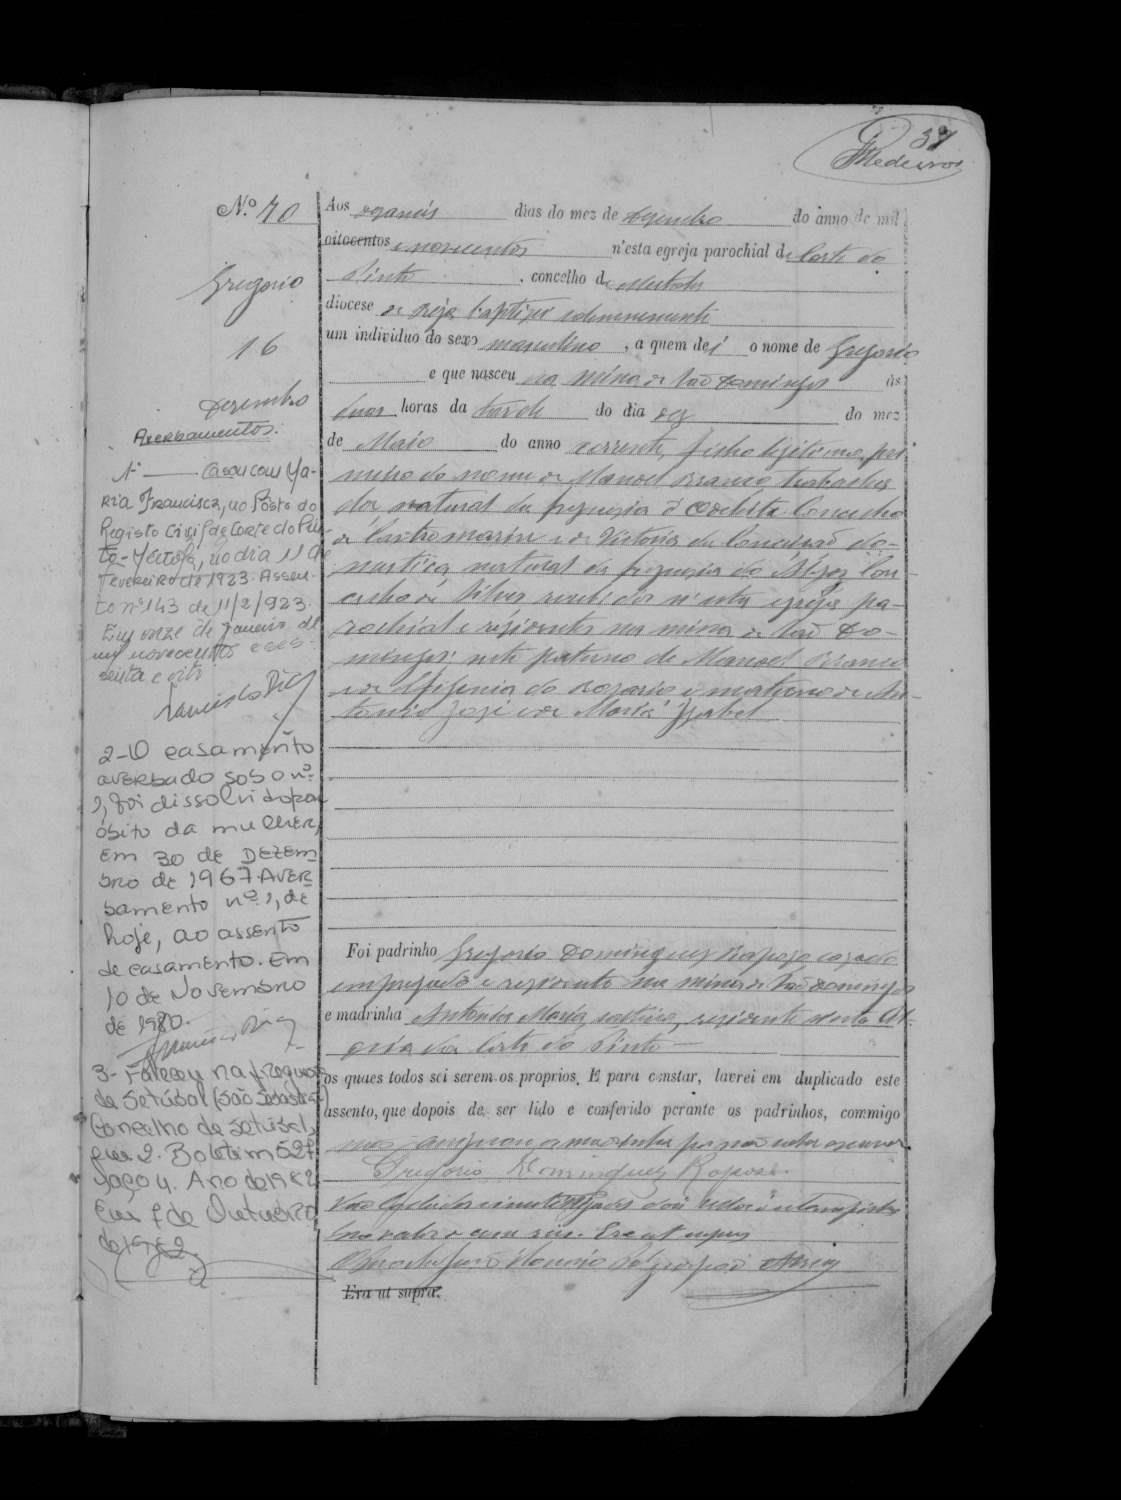 37
Medeiros
N.º 70
Gregorio
16
Dezembro
Averbamentos.
Nº 1 — Casou com Ma-
ria Francisca, no Posto do
Registo Civil de Corte do Pin-
to - Mertola, no dia 11 de
Fevereiro de 1923. Assen-
to nº 143 de 11/2/923.
Em onze de Janeiro de
mil novecentos e ses-
senta e oito
Francisco Dias
2-O casamento
averbado sob o nº
1, foi dissolvido por
óbito da mulher,
em 30 de Dezem-
bro de 1967. Aver-
bamento nº 1, de
hoje, ao assento
de casamento. Em
10 de Novembro
de 1980.
3- Faleceu na freguesia
de Setúbal (São Sebastião)
Concelho de Setúbal,
em 2. Boletim 527
Maço 4. Ano de 1982
Em 7 de Outubro
de 1982
Aos dezaseis dias do mez de dezembro do anno de mil
oitocentos e novecentos n'esta egreja parochial de Corte do
Pinto, concelho de Mertola
diocese de Beja baptizei solemnemente
um individuo do sexo masculino, a quem dei o nome de Gregorio
e que nasceu na mina de São Domingos ás
duas horas da tarde do dia dez do mez
de Maio do anno corrente, filho legitimo, pri-
meiro do nome de Manoel Branco trabalha-
dor natural da freguesia d'Odeleite Concelho
de Castro marim e de Victoria da Conceição do-
mestica, natural da freguesia do Algoz Con-
celho de Silves recebidos n'esta egreja pa-
rochial e residentes na mina de São Do-
mingos; neto paterno de Manoel Branco
e de Efigenia do Rozario e materno de An-
tonio José e de Maria Izabel
Foi padrinho Gregorio Domingues Raposo casado
empregado e residente na mina de São Domingos
e madrinha Antonia Maria, solteira, residente n'esta Al-
deia da Corte do Pinto
os quaes todos sei serem os proprios. E para constar, lavrei em duplicado este
assento, que depois de ser lido e conferido perante os padrinhos, commigo
não assignou a madrinha por não saber escrever.
Gregorio Domingues Raposo.
no valor de cem reis. Era ut supra
Era ut supra.